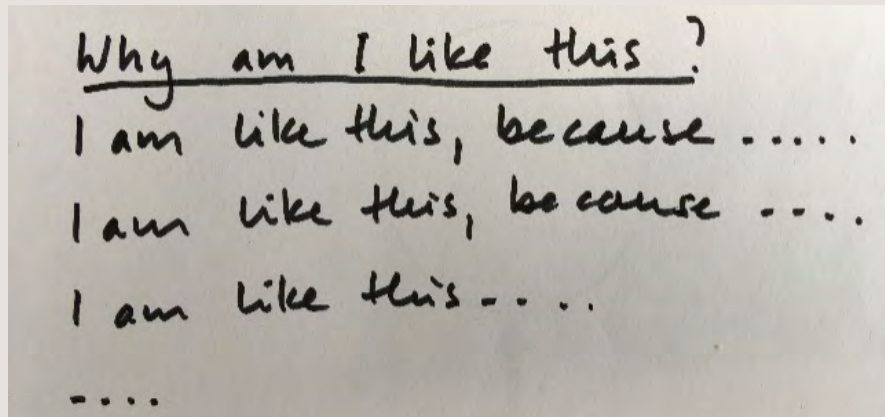 Why am I like this?
I am like this, because .....
I am like this, because ....
I am like this....
....